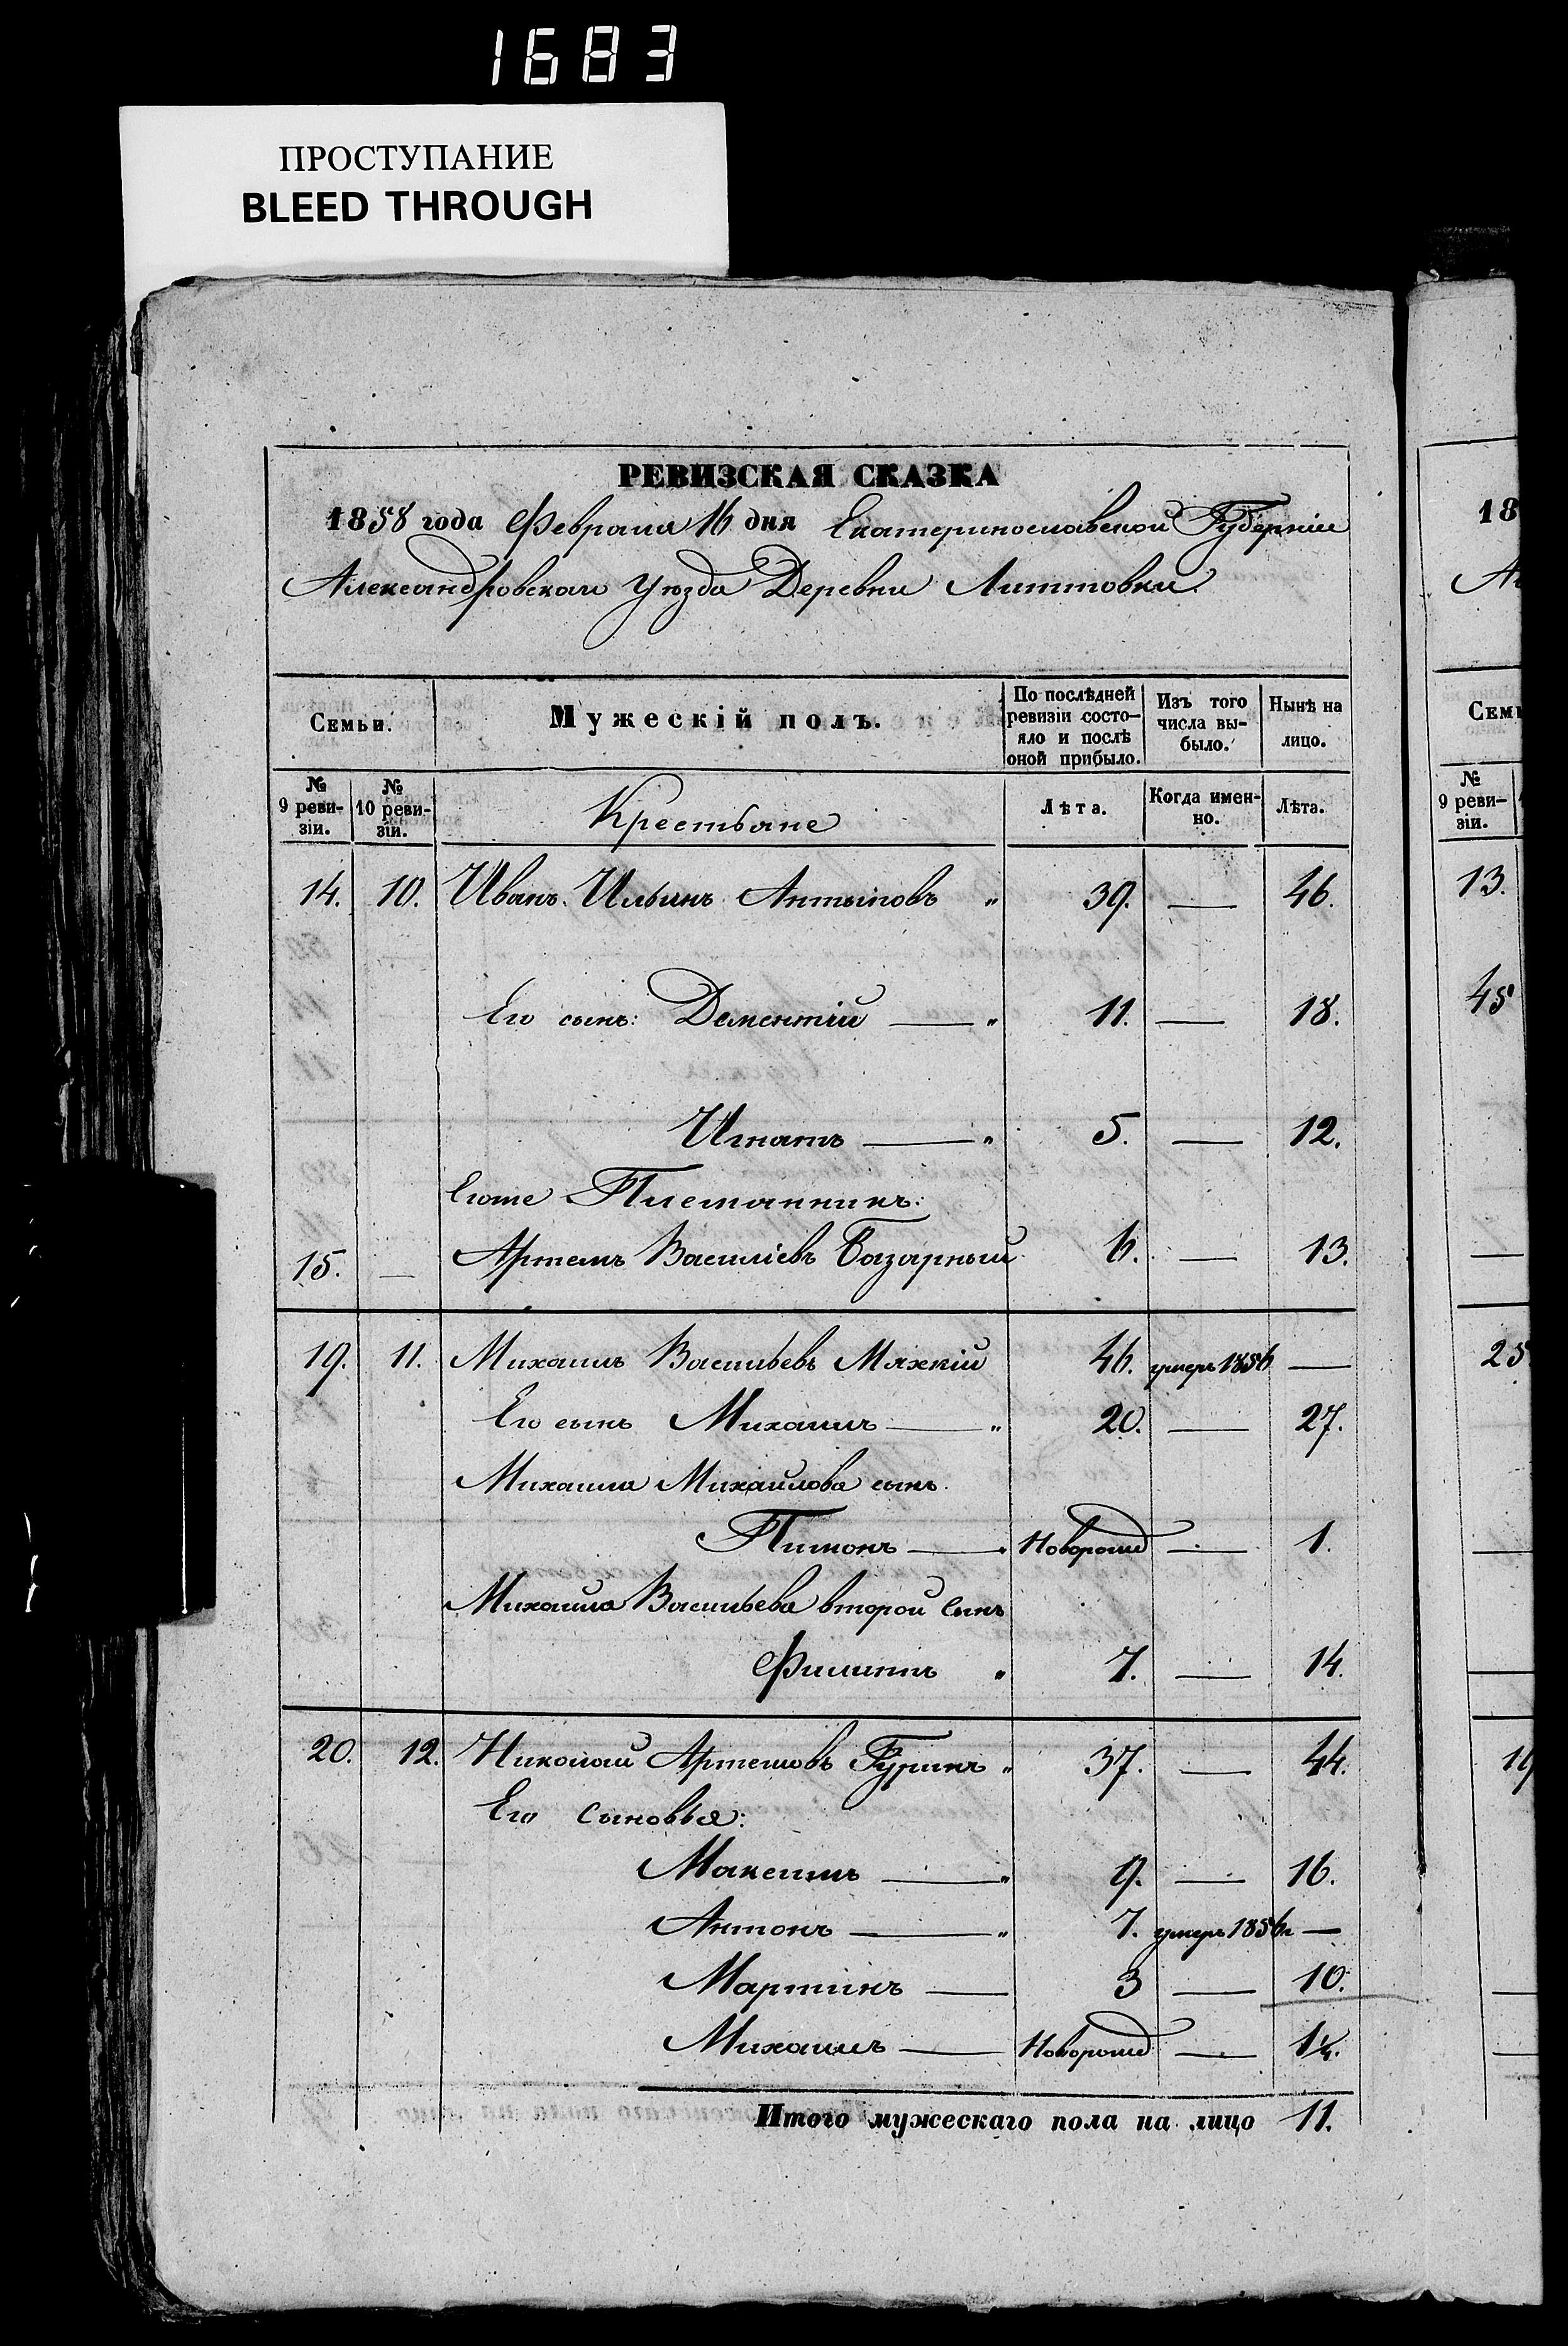 1683
ПРОСТУПАНИЕ
BLEED THROUGH
РЕВИЗСКАЯ СКАЗКА
1858 года Февраля 16 дня Екатеринославской Губерніи
Александровскаго уѣзда Деревни
Семьи. Мужескій полъ. По послѣдней ревизіи состояло и послѣ оной прибыло. Изъ того числа выбыло. Нынѣ на лицо.
№ 9 ревизіи. № 10 ревизіи. Крестьяне Лѣта. Когда именно. Лѣта.
14. 10. Иванъ Ильинъ Антыповъ " 39. — 46.
Его сынъ: Дементій — " 11. — 18.
Игнатъ — " 5. — 12.
Егоже Племянникъ:
15. — Артемъ Василіевъ Базарный 6. — 13.
19. 11. Михаилъ Васильевъ Мяхкій 46. умеръ 1856 —
Его сынъ Михаилъ — " 20. — 27.
Михаила Михайлова сынъ.
Пимонъ — " Новорожд — 1.
Михаила Васильева второй сынъ
Филипъ " 7. — 14.
20. 12. Николай Артемовъ Гуринъ " 37. — 44.
Его Сыновья:
Максимъ — " 9. — 16.
Антонъ — " 7. умеръ 1856г —
Мартинъ — 3 — 10.
Михаилъ — Новорожд —
Итого мужескаго пола на лицо 11.
18
Ал
Семь
№ 9 ревизіи.
13.
45
—
25
—
—
19
—
—